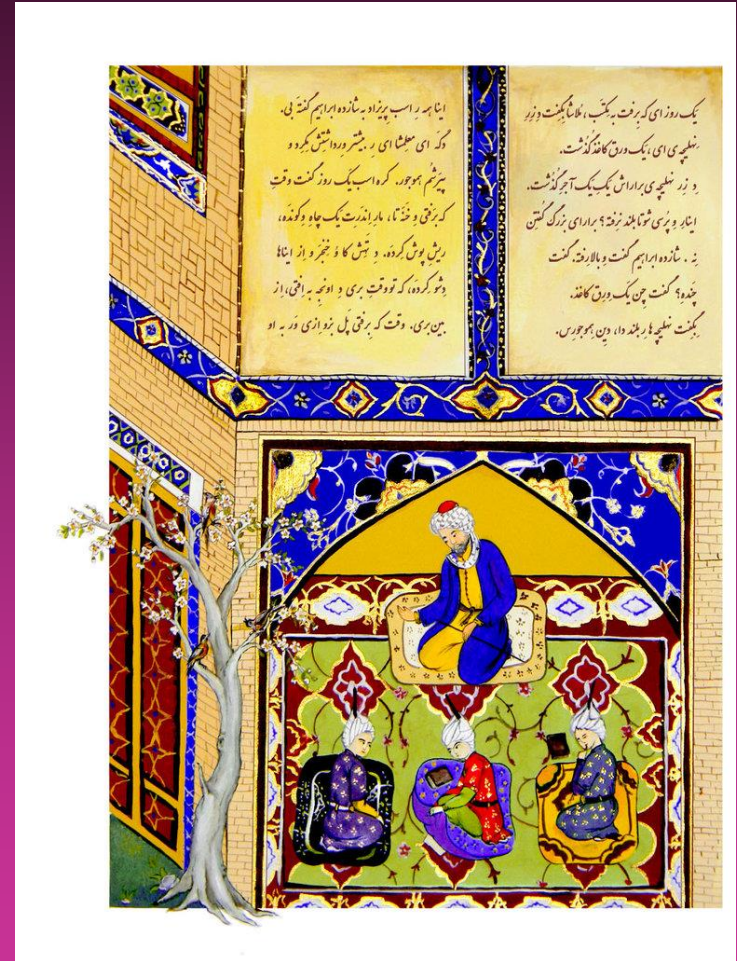 یک روز ای که بِرفت به مکتب، مُلاشا بگفت وِ زِرِ
نِهلیچه ی ای، یک ورق کاغذ گُذشت.
وِ زِر نهلیچه ی براراش یَک یَک آجر گُذشت.
اینارِ وِ پُرسی شوتا بلند نِرفته؟ برارای بزرگ گُفتن
نِه. شازده ابراهیم گفت وِ بالا رفته. گفت
چنده؟ گفت چِن یَک ورق کاغذ.
بگفت نهلیچه ها رِ بلند دا، دین هموجورس.
اینا همه رِ اسب پریزاد به شازده ابراهیم گفته بی.
دگه ای معلمشا ای رِ بیشتر وِرداشتش مِکرد و
پیرشُم هموجور. کره اسب یک روز گفت وقتِ
که بِرَفتی وِ خَنَه تا، مارِ اندرت یک چاهِ وِکونده،
ریش پوش کرده. وِ تَهش کاردُ و خنجر و اِز ایناها
وِشو کرده، که تو وقتِ بری وِ اونجه به اُفتی، اِز
بین بری. وقت که بِرَفتی پَل بزه وازی وَر به او